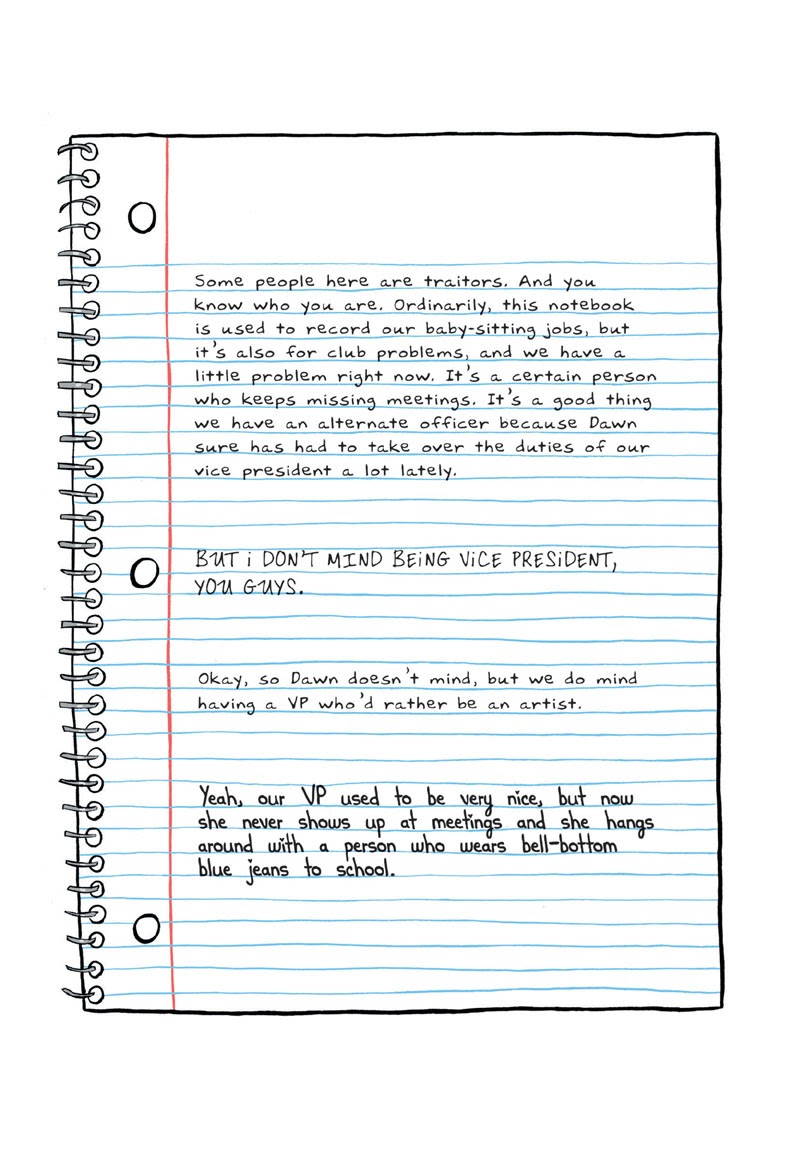 Some people here are traitors. And you
know who you are. Ordinarily, this notebook
is used to record our baby-sitting jobs, but
it's also for club problems, and we have a
little problem right now. It's a certain person
who keeps missing meetings. It's a good thing
we have an alternate officer because Dawn
sure has had to take over the duties of our
vice president a lot lately.
BUT i DON'T MIND BEiNG ViCE PRESiDENT,
YOU GUYS.
Okay, so Dawn doesn't mind, but we do mind
having a VP who'd rather be an artist.
Yeah, our VP used to be very nice, but now
she never shows up at meetings and she hangs
around with a person who wears bell-bottom
blue jeans to school.